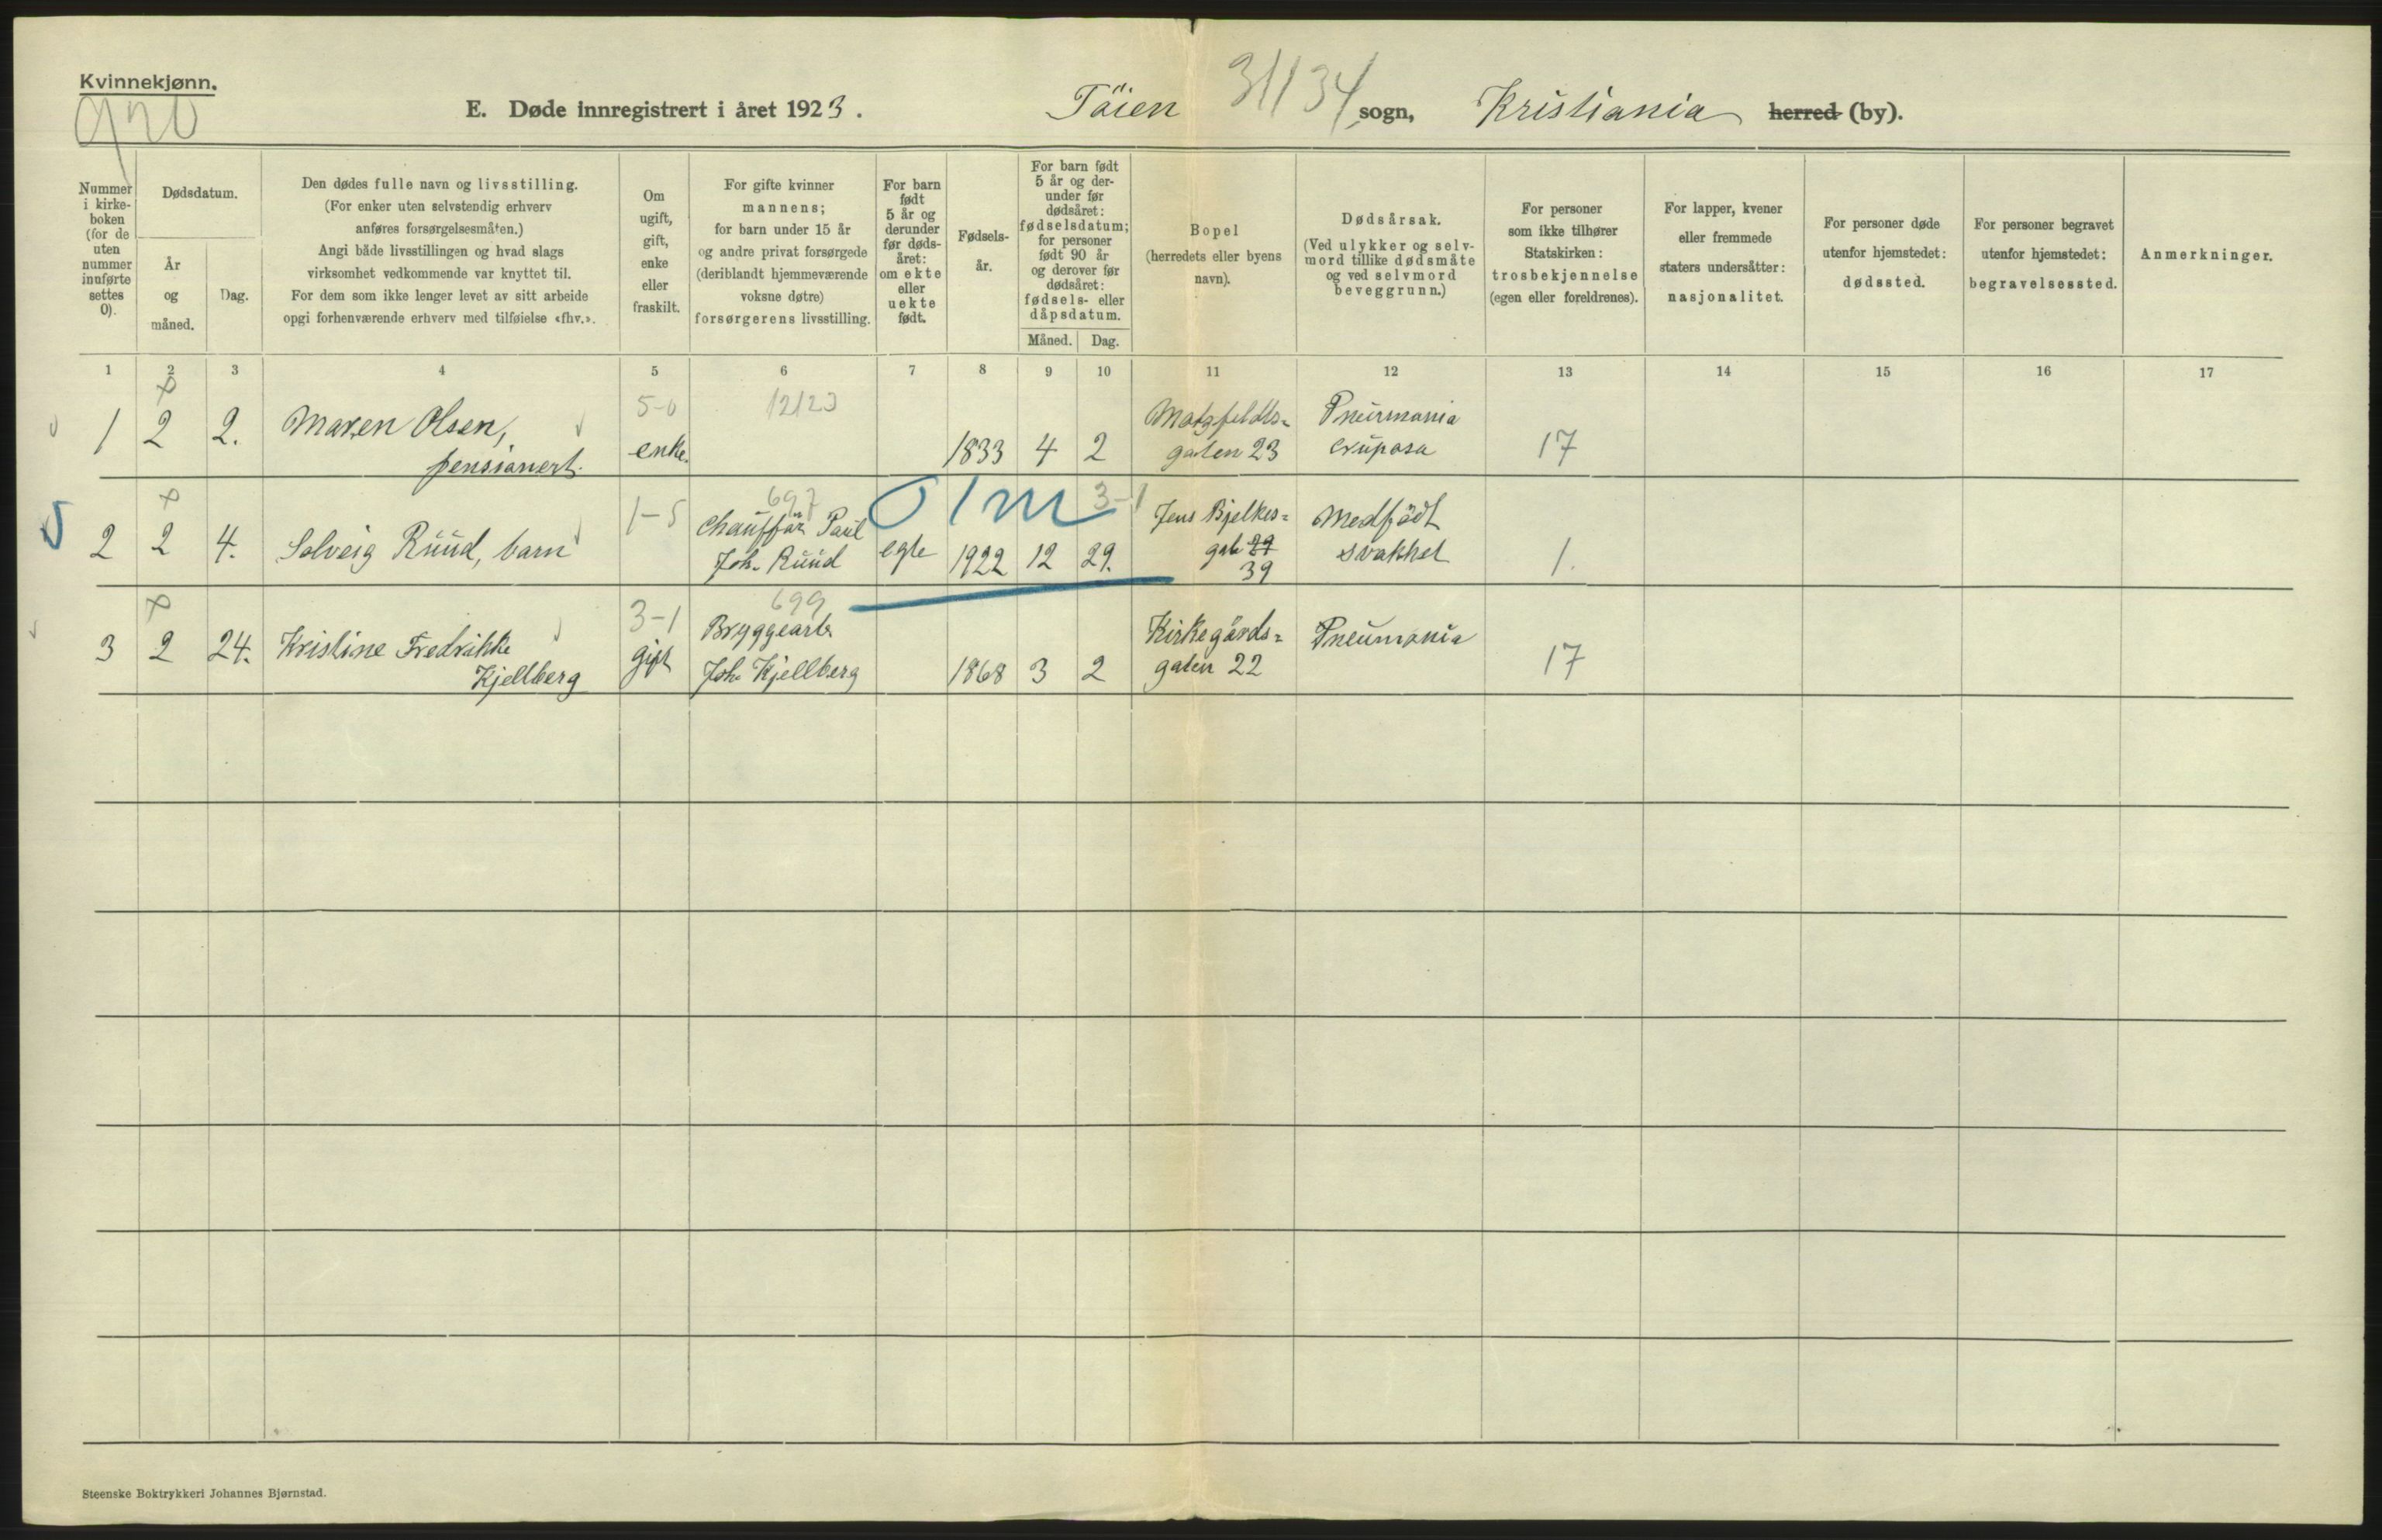 Kvinnekjønn.
920
E. Døde innregistrert i året 1923. Töien sogn, Kristiania herred (by).
31134
Nummer i kirke-boken (for de uten nummer innførte settes 0).
Dødsdatum.
År og måned.
Dag.
Den dødes fulle navn og livsstilling.
(For enker uten selvstendig erhverv
anføres forsørgelsesmåten.)
Angi både livsstillingen og hvad slags
virksomhet vedkommende var knyttet til.
For dem som ikke lenger levet av sitt arbeide
opgi forhenværende erhverv med tilføielse «fhv.».
Om
ugift,
gift,
enke
eller
fraskilt.
For gifte kvinner
mannens;
for barn under 15 år
og andre privat forsørgede
(deriblandt hjemmeværende
voksne døtre)
forsørgerens livsstilling.
For barn
født
5 år og
derunder
før døds-
året:
om ekte
eller
uekte
født.
Fødsels-
år.
For barn født
5 år og der-
under før
dødsåret:
fødselsdatum;
for personer
født 90 år
og derover før
dødsåret:
fødsels- eller
dåpsdatum.
Måned. Dag.
Bopel
(herredets eller byens
navn).
Dødsårsak.
(Ved ulykker og selv-
mord tillike dødsmåte
og ved selvmord
beveggrunn.)
For personer
som ikke tilhører
Statskirken:
trosbekjennelse
(egen eller foreldrenes).
For lapper, kvener
eller fremmede
staters undersåtter:
nasjonalitet.
For personer døde
utenfor hjemstedet:
dødssted.
For personer begravet
utenfor hjemstedet:
begravelsessted.
Anmerkninger.
1 2 3 4 5 6 7 8 9 10 11 12 13 14 15 16 17
5-0 12123
1 2 2. Maren Olsen,
pensionert.
enke. 1833 4 2
Motzfeldts=
gaten 23
Pneumonia
cruposa
17
1-5 697 01m 3-1
2 2 4. Solveig Ruud, barn
Chauffør Paul
Joh. Ruud
egte 1922 12 29.
Jens Bjelkes=
gate 29
39
Medfödt
svakhet
1.
3-1 699
3 2 24. Kristine Fredrikke
Kjellberg
gift
Bryggearb.
Joh. Kjellberg
1868 3 2
Kirkegårds=
gaten 22
Pneumonia
17
Steenske Boktrykkeri Johannes Bjørnstad.